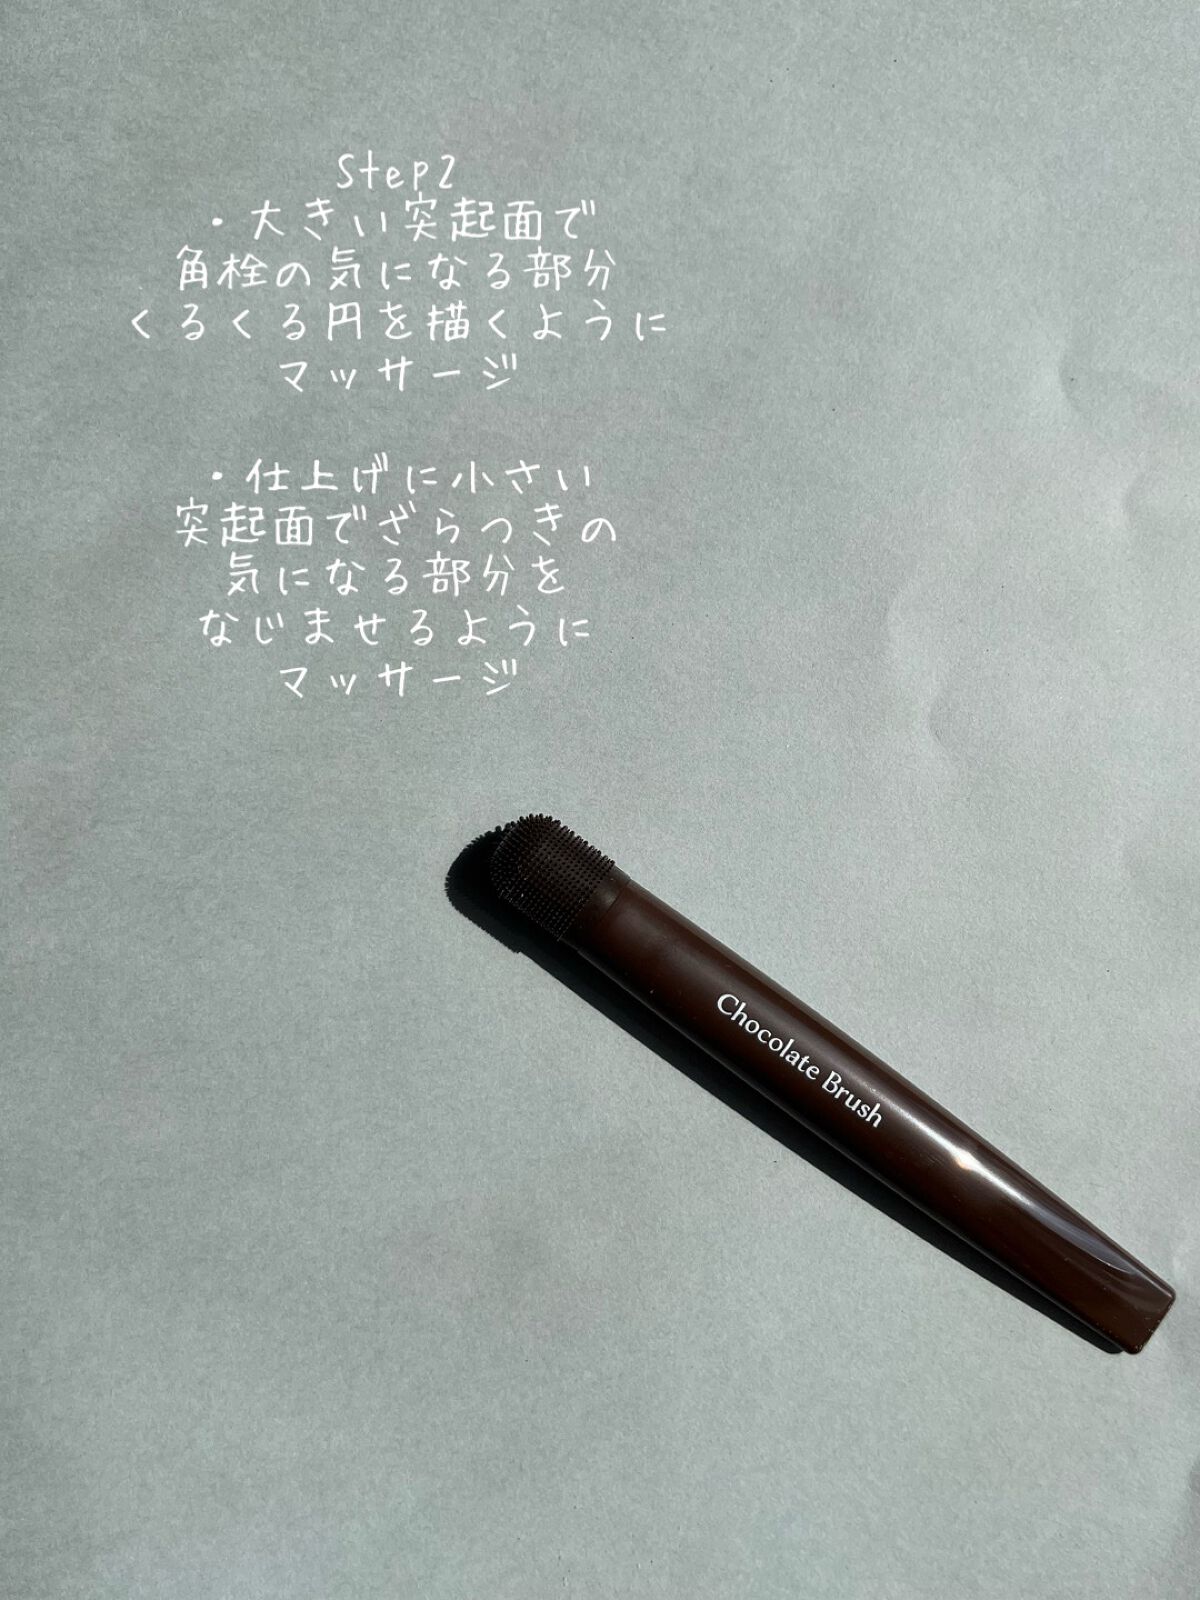 Step2
・大きい突起面で
角栓の気になる部分
くるくる円を描くように
マッサージ
・仕上げに小さい
突起面でざらつきの
気になる部分を
なじませるように
マッサージ
Chocolate Brush